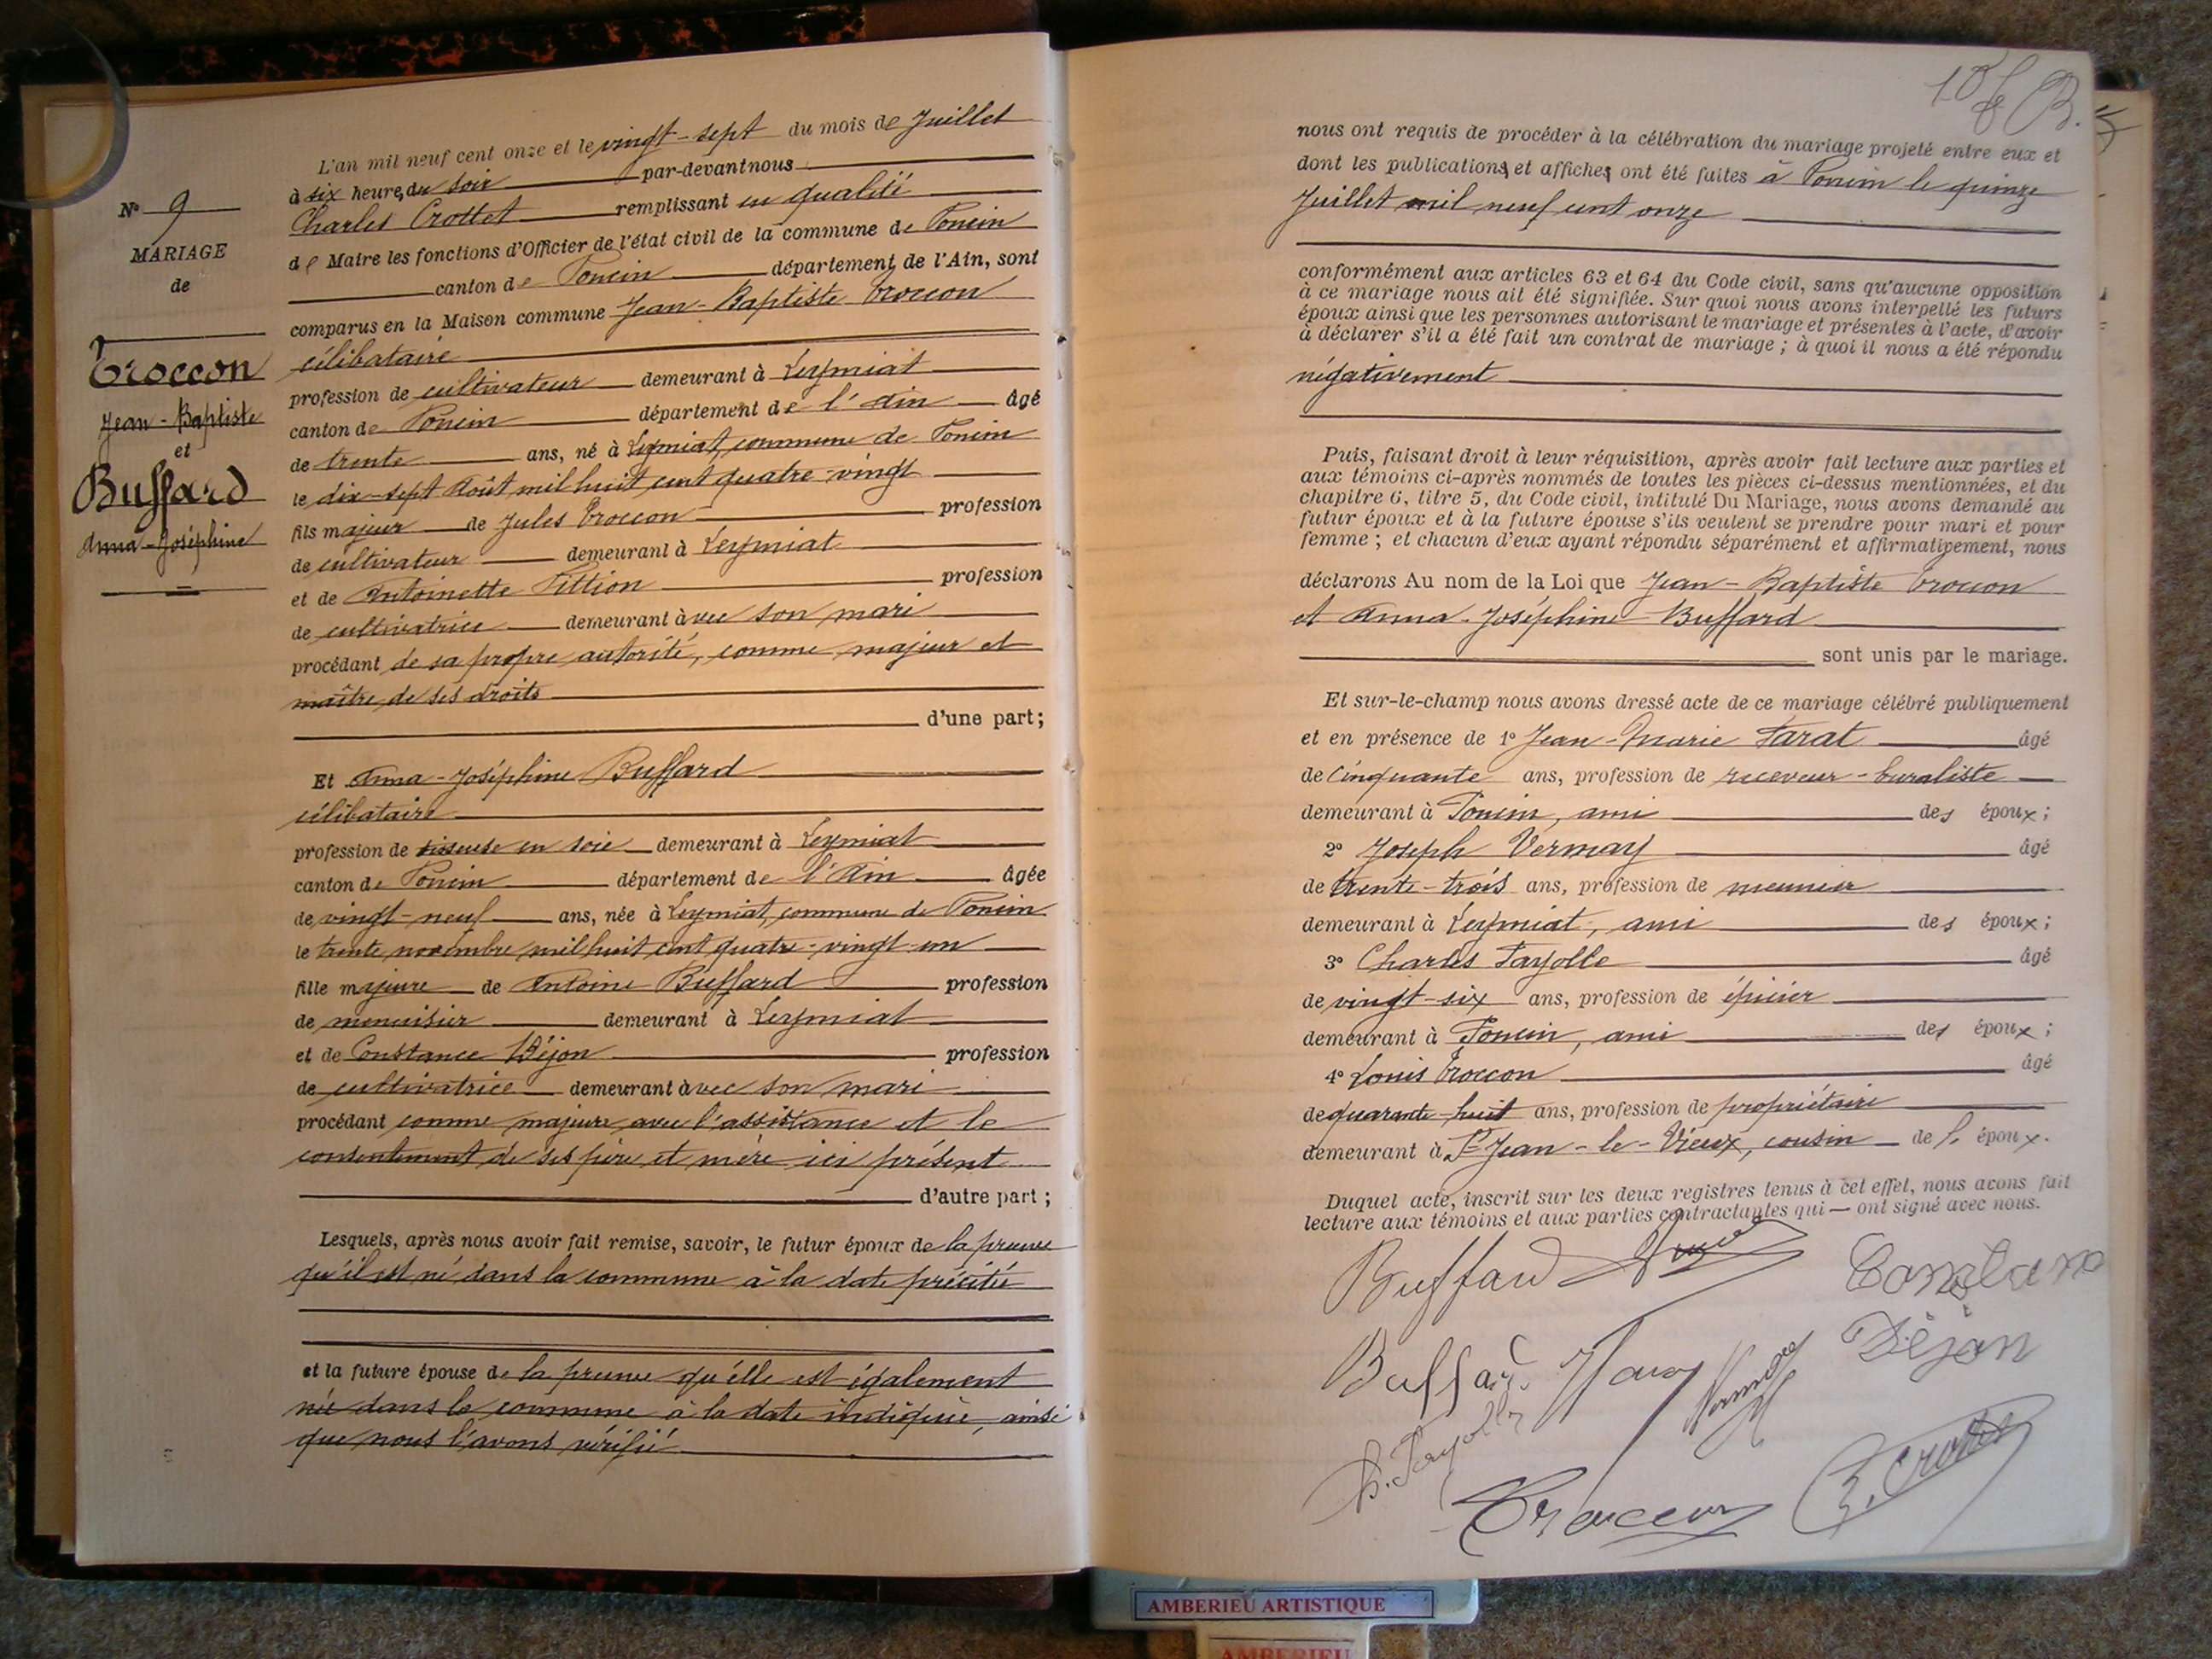 N° 9
MARIAGE
de
Troccon
Jean-Baptiste
et
Buffard
Anna-Joséphine
L'an mil neuf cent onze et le vingt-sept du mois de Juillet
à six heures du soir par-devant nous
Charles Crottet remplissant en qualité
de Maire les fonctions d'Officier de l'état civil de la commune de Poncin
canton de Poncin département de l'Ain, sont
comparus en la Maison commune Jean-Baptiste Troccon
célibataire
profession de cultivateur demeurant à Leymiat
canton de Poncin département de l'Ain âgé
de trente ans, né à Leymiat, commune de Poncin
le dix-sept Août mil huit cent quatre-vingt
fils majeur de Jules Troccon profession
de cultivateur demeurant à Leymiat
et de Antoinette Fillion profession
de cultivatrice demeurant avec son mari
procédant de sa propre autorité, comme majeur et
maître de ses droits
d'une part;
Et Anna-Joséphine Buffard
célibataire
profession de tisseuse en soie demeurant à Leymiat
canton de Poncin département de l'Ain âgée
de vingt-neuf ans, née à Leymiat, commune de Poncin
le trente novembre mil huit cent quatre-vingt-un
fille majeure de Antoine Buffard profession
de menuisier demeurant à Leymiat
et de Constance Déjon profession
de cultivatrice demeurant avec son mari
procédant comme majeure avec l'assistance et le
consentement de ses père et mère ici présent
d'autre part;
Lesquels, après nous avoir fait remise, savoir, le futur époux de la preuve
qu'il est né dans la commune à la date précitée
et la future épouse de la preuve qu'elle est également
née dans la commune à la date indiquée, ainsi
que nous l'avons vérifié
nous ont requis de procéder à la célébration du mariage projeté entre eux et
dont les publications et affiches ont été faites à Poncin le quinze
Juillet mil neuf cent onze
conformément aux articles 63 et 64 du Code civil, sans qu'aucune opposition
à ce mariage nous ait été signifiée. Sur quoi nous avons interpellé les futurs
époux ainsi que les personnes autorisant le mariage et présentes à l'acte, d'avoir
à déclarer s'il a été fait un contrat de mariage ; à quoi il nous a été répondu
négativement
Puis, faisant droit à leur réquisition, après avoir fait lecture aux parties et
aux témoins ci-après nommés de toutes les pièces ci-dessus mentionnées, et du
chapitre 6, titre 5, du Code civil, intitulé Du Mariage, nous avons demandé au
futur époux et à la future épouse s'ils veulent se prendre pour mari et pour
femme ; et chacun d'eux ayant répondu séparément et affirmativement, nous
déclarons Au nom de la Loi que Jean-Baptiste Troccon
et Anna-Joséphine Buffard
sont unis par le mariage.
Et sur-le-champ nous avons dressé acte de ce mariage célébré publiquement
et en présence de 1° Jean-Marie Farat âgé
de cinquante ans, profession de receveur-buraliste
demeurant à Poncin, ami des époux ;
2° Joseph Vermay âgé
de trente-trois ans, profession de meunier
demeurant à Leymiat, ami des époux ;
3° Charles Fayolle âgé
de vingt-six ans, profession de épicier
demeurant à Poncin, ami des époux ;
4° Louis Troccon âgé
de quarante-huit ans, profession de propriétaire
demeurant à St Jean-le-Vieux, cousin de l'époux.
Duquel acte, inscrit sur les deux registres tenus à cet effet, nous avons fait
lecture aux témoins et aux parties contractantes qui — ont signé avec nous.
Buffard
Constance
Buffard
Déjon
C. Fayolle
Troccon
C. Crottet
AMBERIEU ARTISTIQUE
AMBERIEU